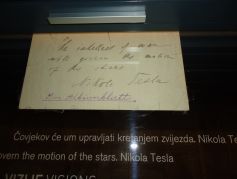 The intellect of man
will govern the motion
of the stars
Nikola Tesla
Ein Albumblatt
Čovjekov će um upravljati kretanjem zvijezda. Nikola Te
overn the motion of the stars. Nikola Tesla
VIZIJE VISIONS